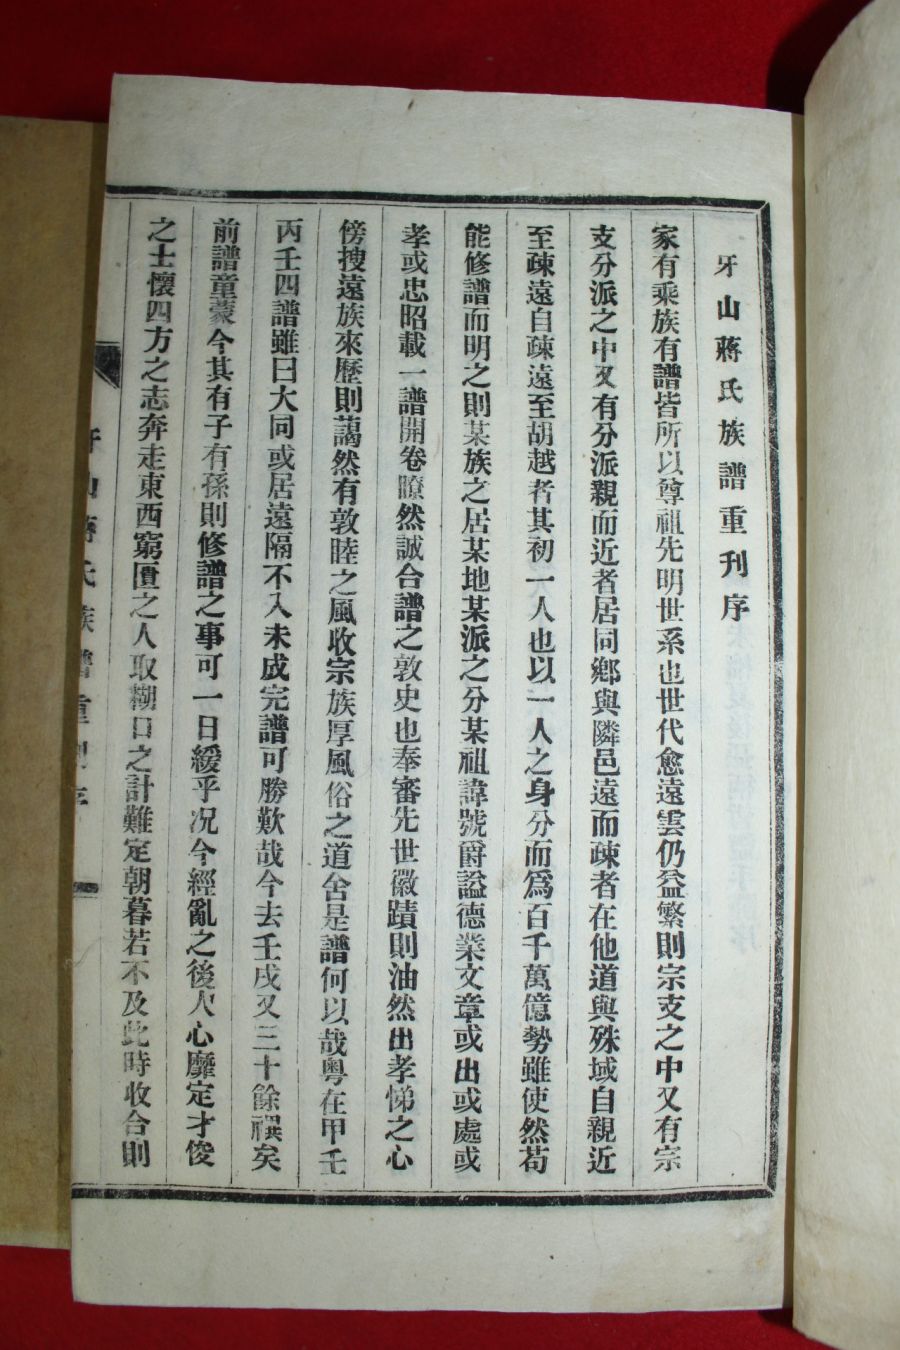 牙山蔣氏族譜重刋序
家有乘族有譜皆所以尊祖先明世系也世代愈遠雲仍益繁則宗支之中又有宗
支分派之中又有分派親而近者居同鄉與隣邑遠而疎者在他道與殊域自親近
至疎遠自疎遠至胡越者其初一人也以一人之身分而爲百千萬億勢雖使然苟
能修譜而明之則某族之居某地某派之分某祖諱號爵謚德業文章或出或處或
孝或忠昭載一譜開卷瞭然誠合譜之敦史也奉審先世徽蹟則油然出孝悌之心
傍搜遠族來歷則藹然有敦睦之風收宗族厚風俗之道舍是譜何以哉粤在甲壬
丙壬四譜雖曰大同或居遠隔不入未成完譜可勝歎哉今去壬戌又三十餘禩矣
前譜童蒙今其有子有孫則修譜之事可一日緩乎况今經亂之後人心靡定才俊
之士懷四方之志奔走東西窮匱之人取糊口之計難定朝暮若不及此時收合則
山蔣氏族譜重刋序